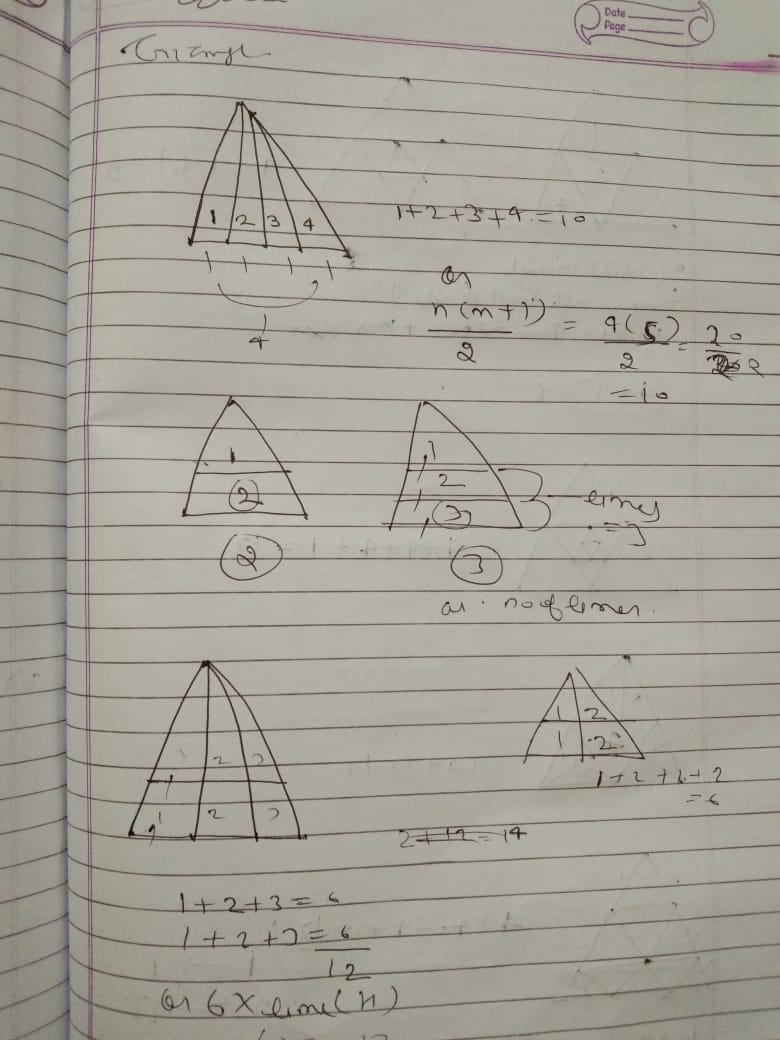 Date
Page
Triangl
1 2 3 4
1+2+3+4=10
1 1 1 1
4
or
n(n+1) = 4(5) = 20
2 2 2
=10
1
2
2
1
1 2
1 3
1
lines
=3
3
or no of lines.
1 2
1 2
1+2+1+2
=6
1 2 3
1 2 3
2+12=14
1+2+3=6
1+2+3=6
12
or 6× line(H)